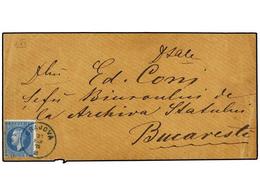 Dsale
Ed. Coni
Sefu Biuroului de
la Archiva Statului
Bucaresti